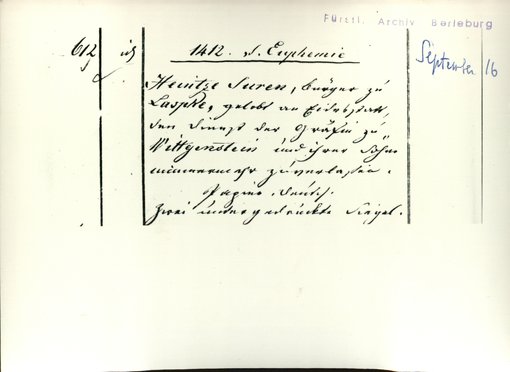 Fürstl. Archiv Berleburg
612 1412. S. Euphemie September 16
Heintze Suren, Bürger zu
Lasphe, gelobt an Eidesstatt,
den Dienst der Gräfin zu
Wittgenstein und ihrer Söhne
nimmermehr zu verlassen.
Papier, deutsch.
Zwei untergedrückte Siegel.